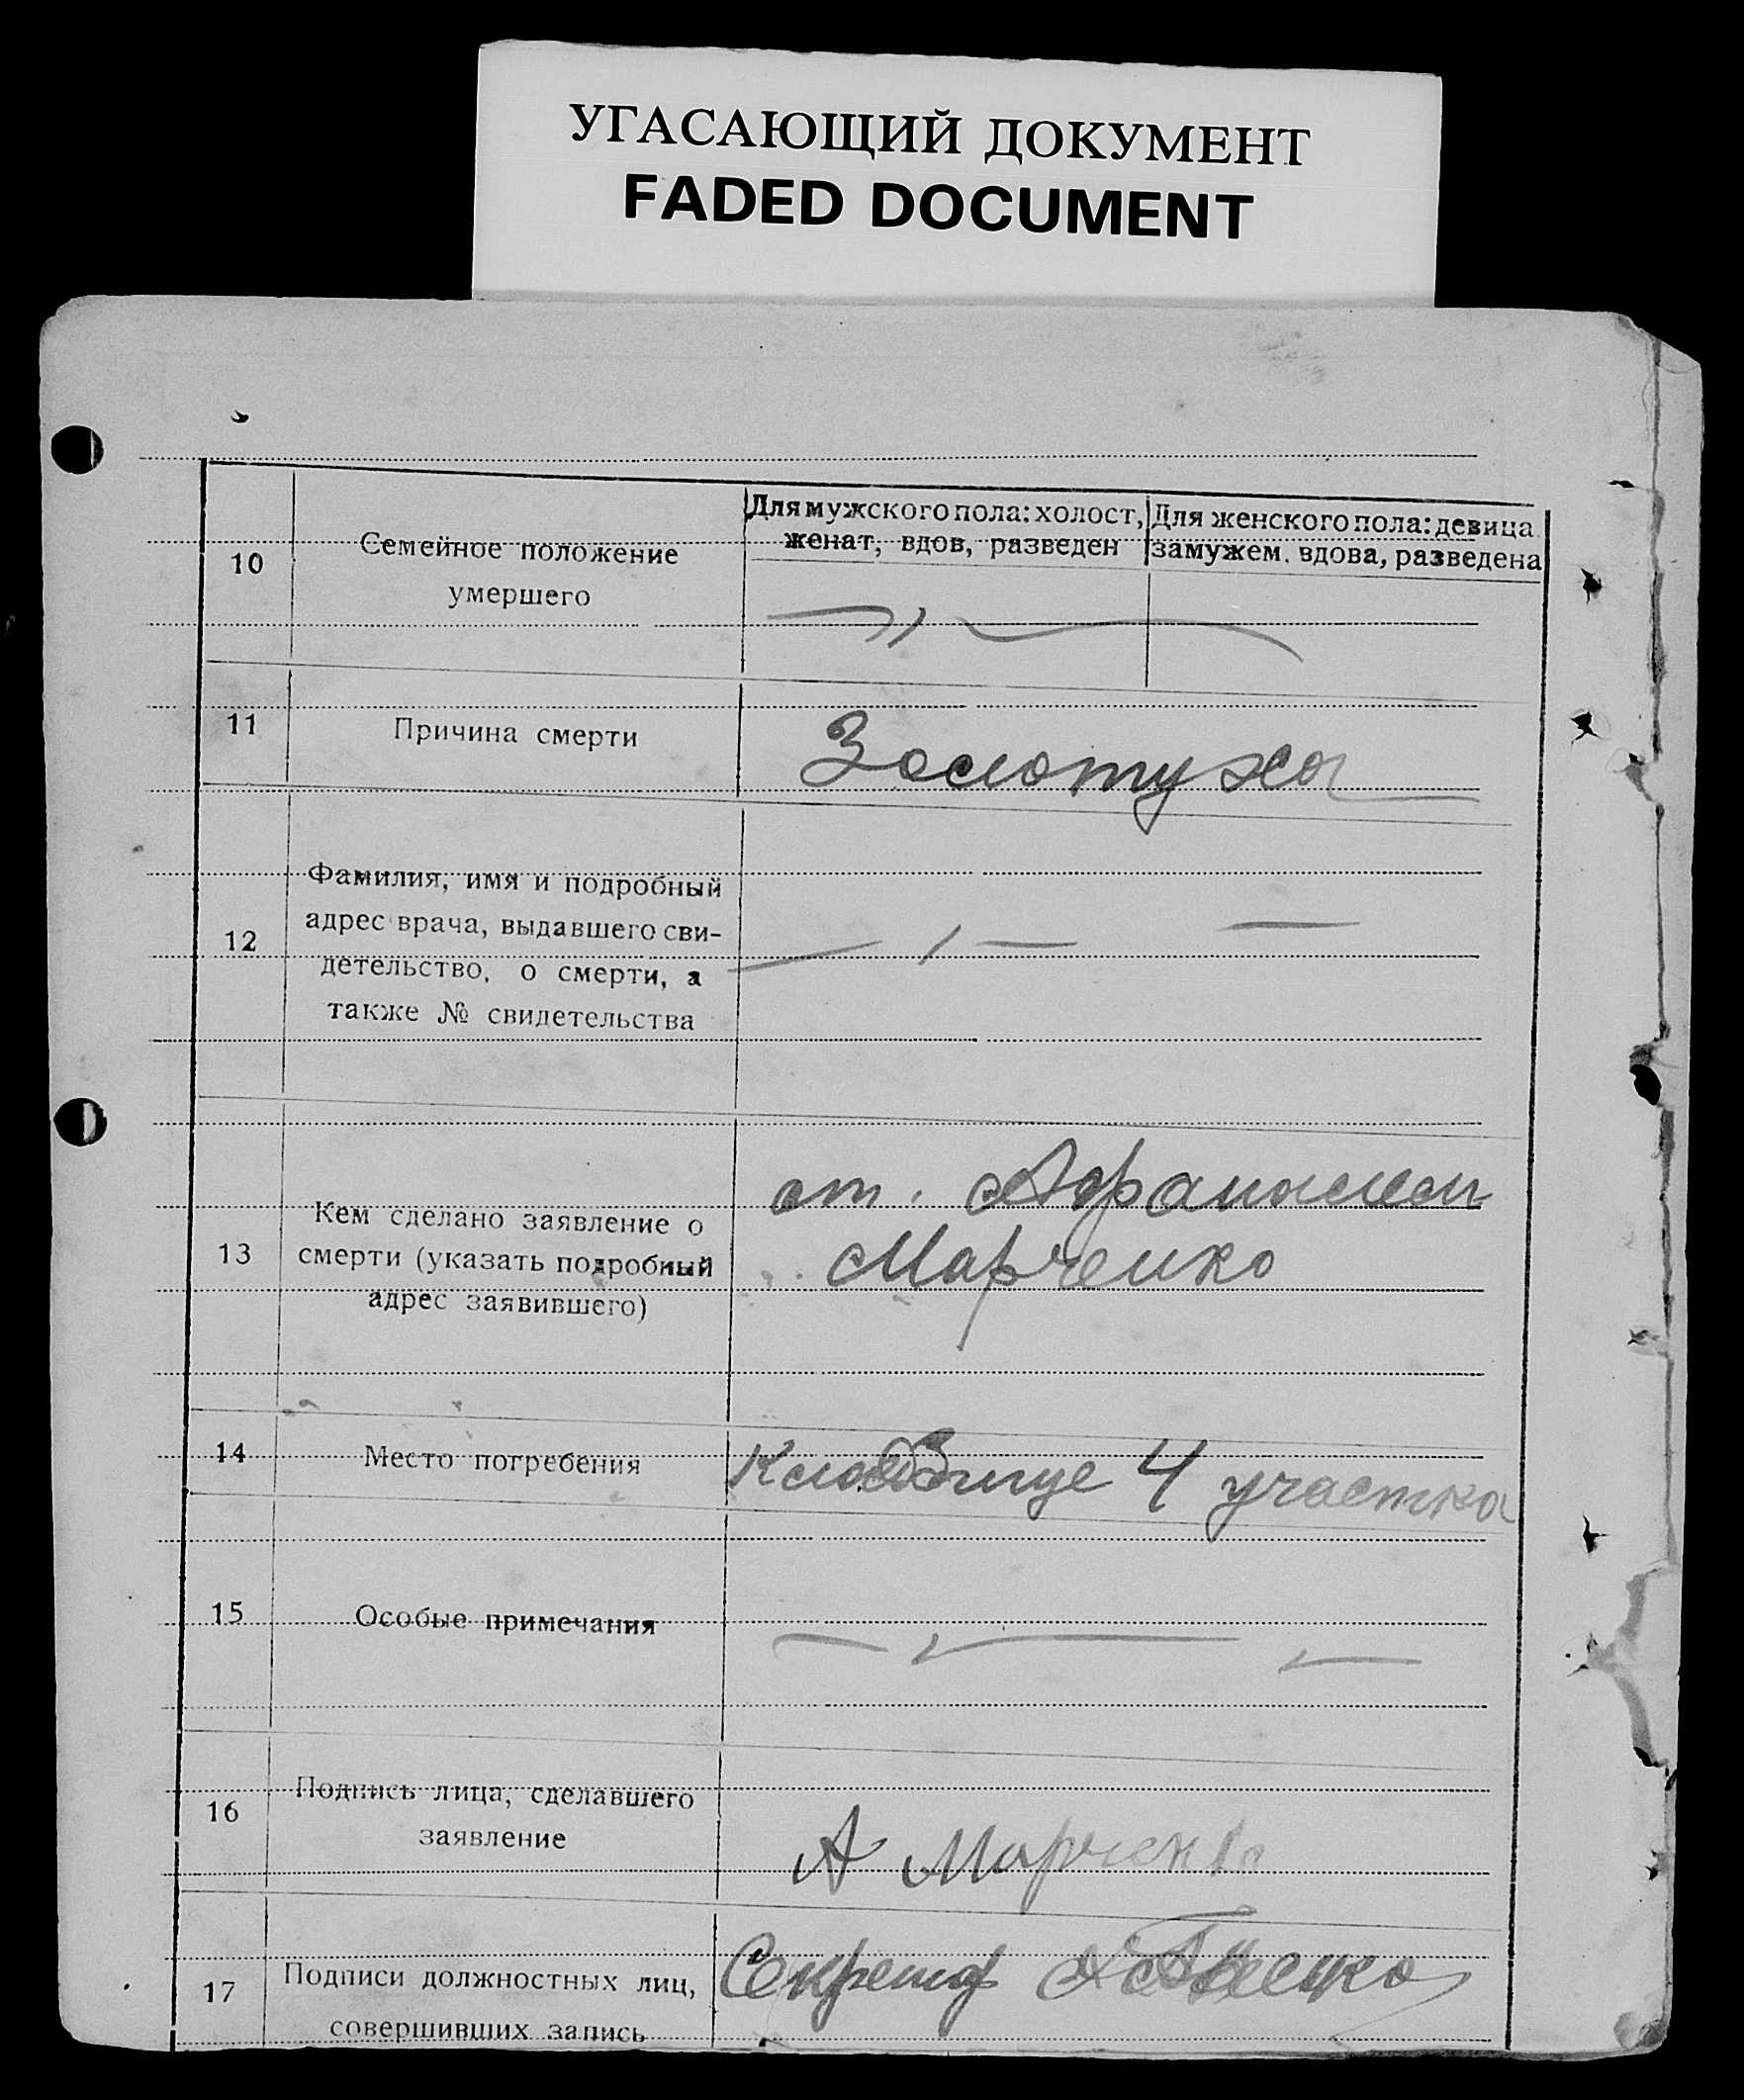 УГАСАЮЩИЙ ДОКУМЕНТ
FADED DOCUMENT
10
Семейное положение
умершего
Для мужского пола: холост,
женат, вдов, разведен
Для женского пола: девица
замужем, вдова, разведена
11
Причина смерти
Золотуха
12
Фамилия, имя и подробный
адрес врача, выдавшего сви-
детельство, о смерти, а
также № свидетельства
13
Кем сделано заявление о
смерти (указать подробный
адрес заявившего)
от.
Марченко
14
Место погребения
Кладбище 4 участка
15
Особые примечания
16
Подпись лица, сделавшего
заявление
А Марченко
17
Подписи должностных лиц,
совершивших запись
Секретар